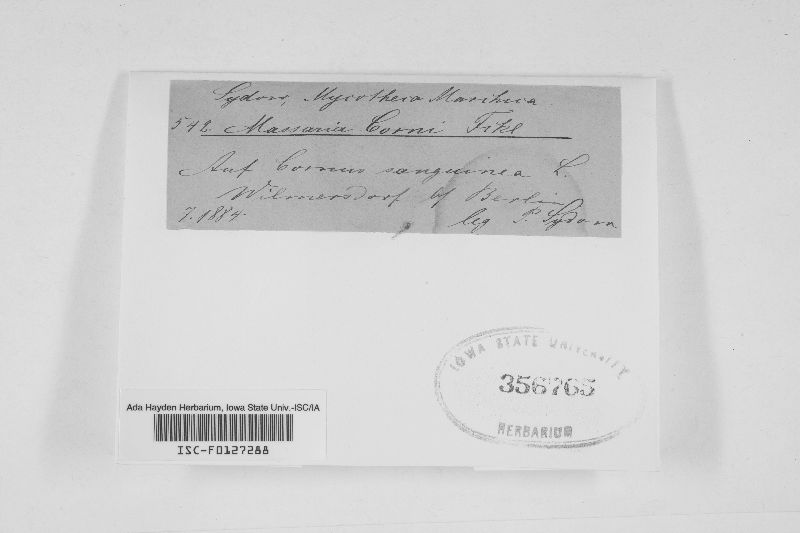 Sydow, Mycotheca Marchica
542. Massaria Corni Fckl
Auf Cornus sanguinea L.
Wilmersdorf bf Berlin
7. 1884. leg P. Sydow
IOWA STATE UNIVERSITY
356765
HERBARIUM
Ada Hayden Herbarium, Iowa State Univ.-ISC/IA
ISC-F0127288